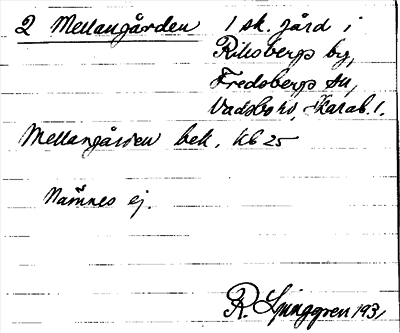 2 Mellangården 1 sk. gård i
Riksbergs by,
Fredsbergs sn,
Vadsbo hd, Skarab. l.
Mellangården bek. Kb 25
Nämnes ej.
R. Ljunggren 1931